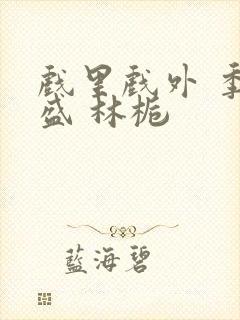 戲里戲外 季
盛 林栀
藍海碧